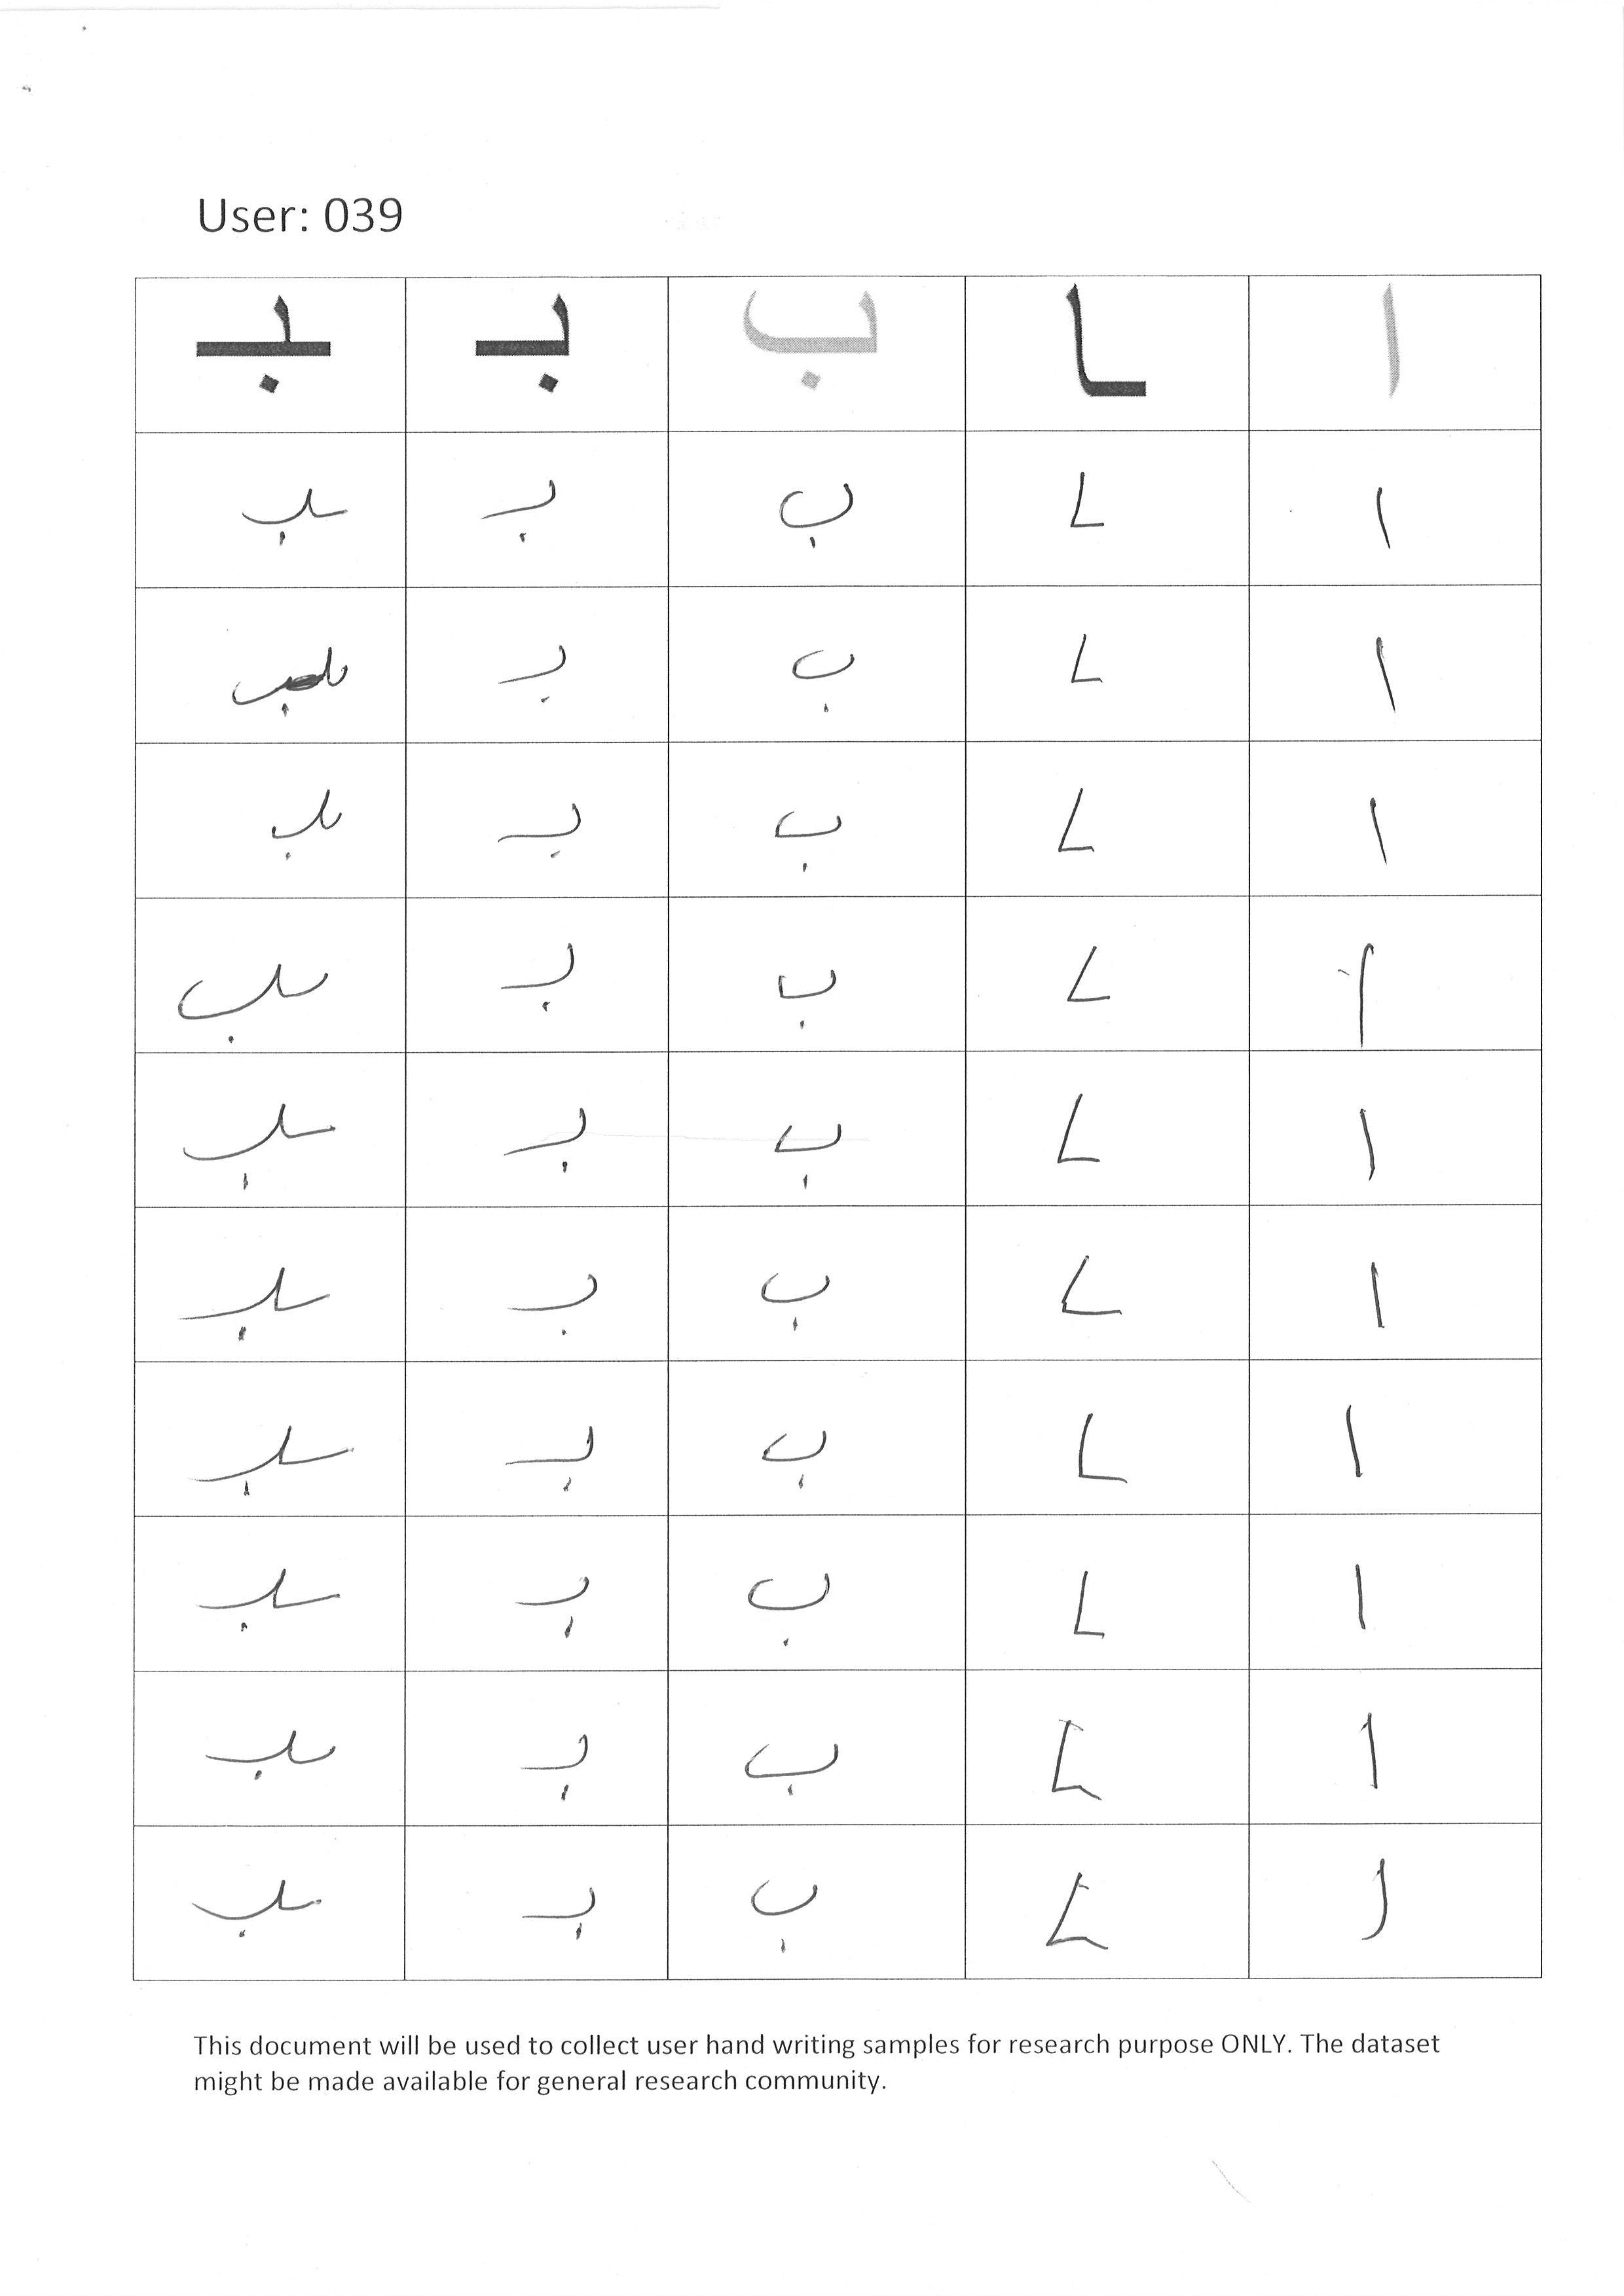 User: 039
ا ـا ب بـ ـبـ
ا ـا ب بـ ـبـ
ا ـا ب بـ ـبـ
ا ـا ب بـ ـبـ
ا ـا ب بـ ـبـ
ا ـا ب بـ ـبـ
ا ـا ب بـ ـبـ
ا ـا ب بـ ـبـ
ا ـا ب بـ ـبـ
ا ـا ب بـ ـبـ
ا ـا ب بـ ـبـ
This document will be used to collect user hand writing samples for research purpose ONLY. The dataset
might be made available for general research community.